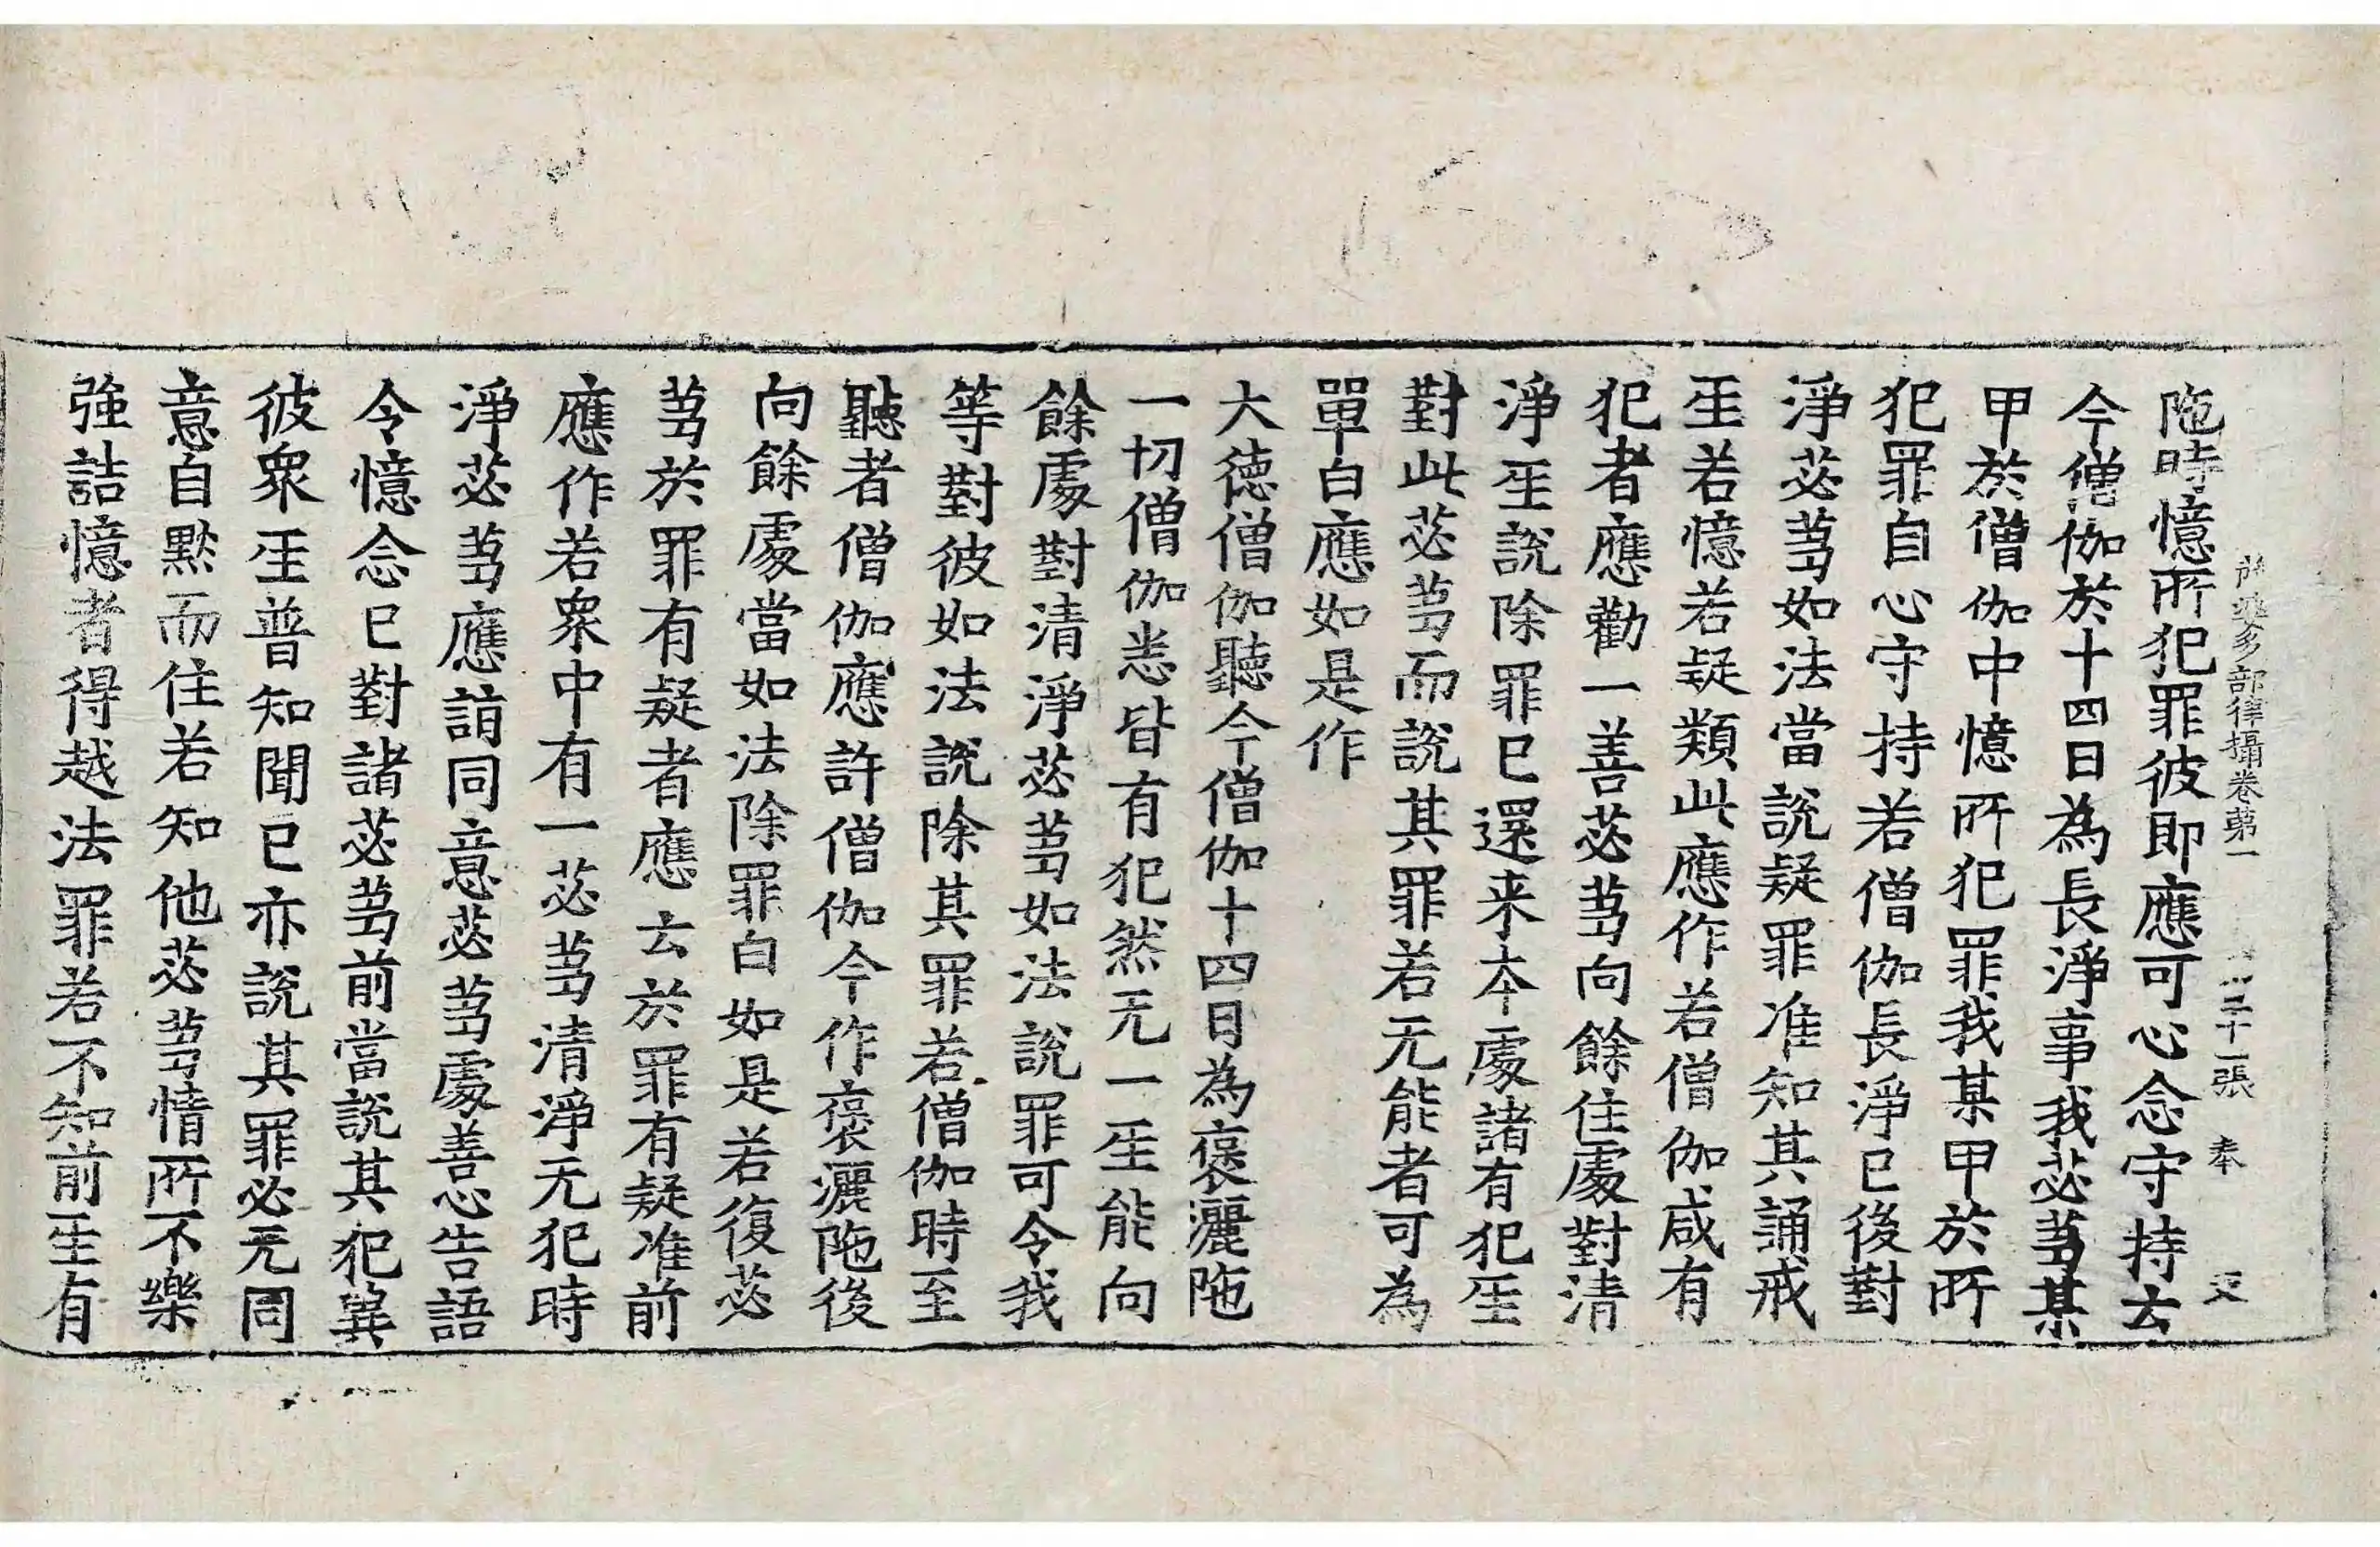 陁時憶所犯罪彼即應可心念守持云
薩婆多部律攝卷第一 三十一張 奉
今僧伽於十四日為長淨事我苾芻某
甲於僧伽中憶所犯罪我某甲於所
犯罪自心守持若僧伽長淨已後對
淨苾芻如法當說疑罪准知其誦戒
𤯔若憶若疑類此應作若僧伽咸有
犯者應勸一善苾芻向餘住處對清
淨𤯔說除罪已還来夲處諸有犯𤯔
對此苾芻而說其罪若无能者可為
單白應如是作
大德僧伽聽今僧伽十四日為褒灑陁
一切僧伽悉皆有犯然无一𤯔能向
餘處對清淨苾芻如法說罪可令我
等對彼如法說除其罪若僧伽時至
聽者僧伽應許僧伽今作褒灑陁後
向餘處當如法除罪白如是若復苾
芻於罪有疑者應云於罪有疑准前
應作若衆中有一苾芻清淨无犯時
淨苾芻應詣同意苾芻處善心告語
令憶念已對諸苾芻前當說其犯冀
彼衆𤯔普知聞已亦說其罪必无同
意自黙而住若知他苾芻情所不樂
強詰憶者得越法罪若不知前𤯔有